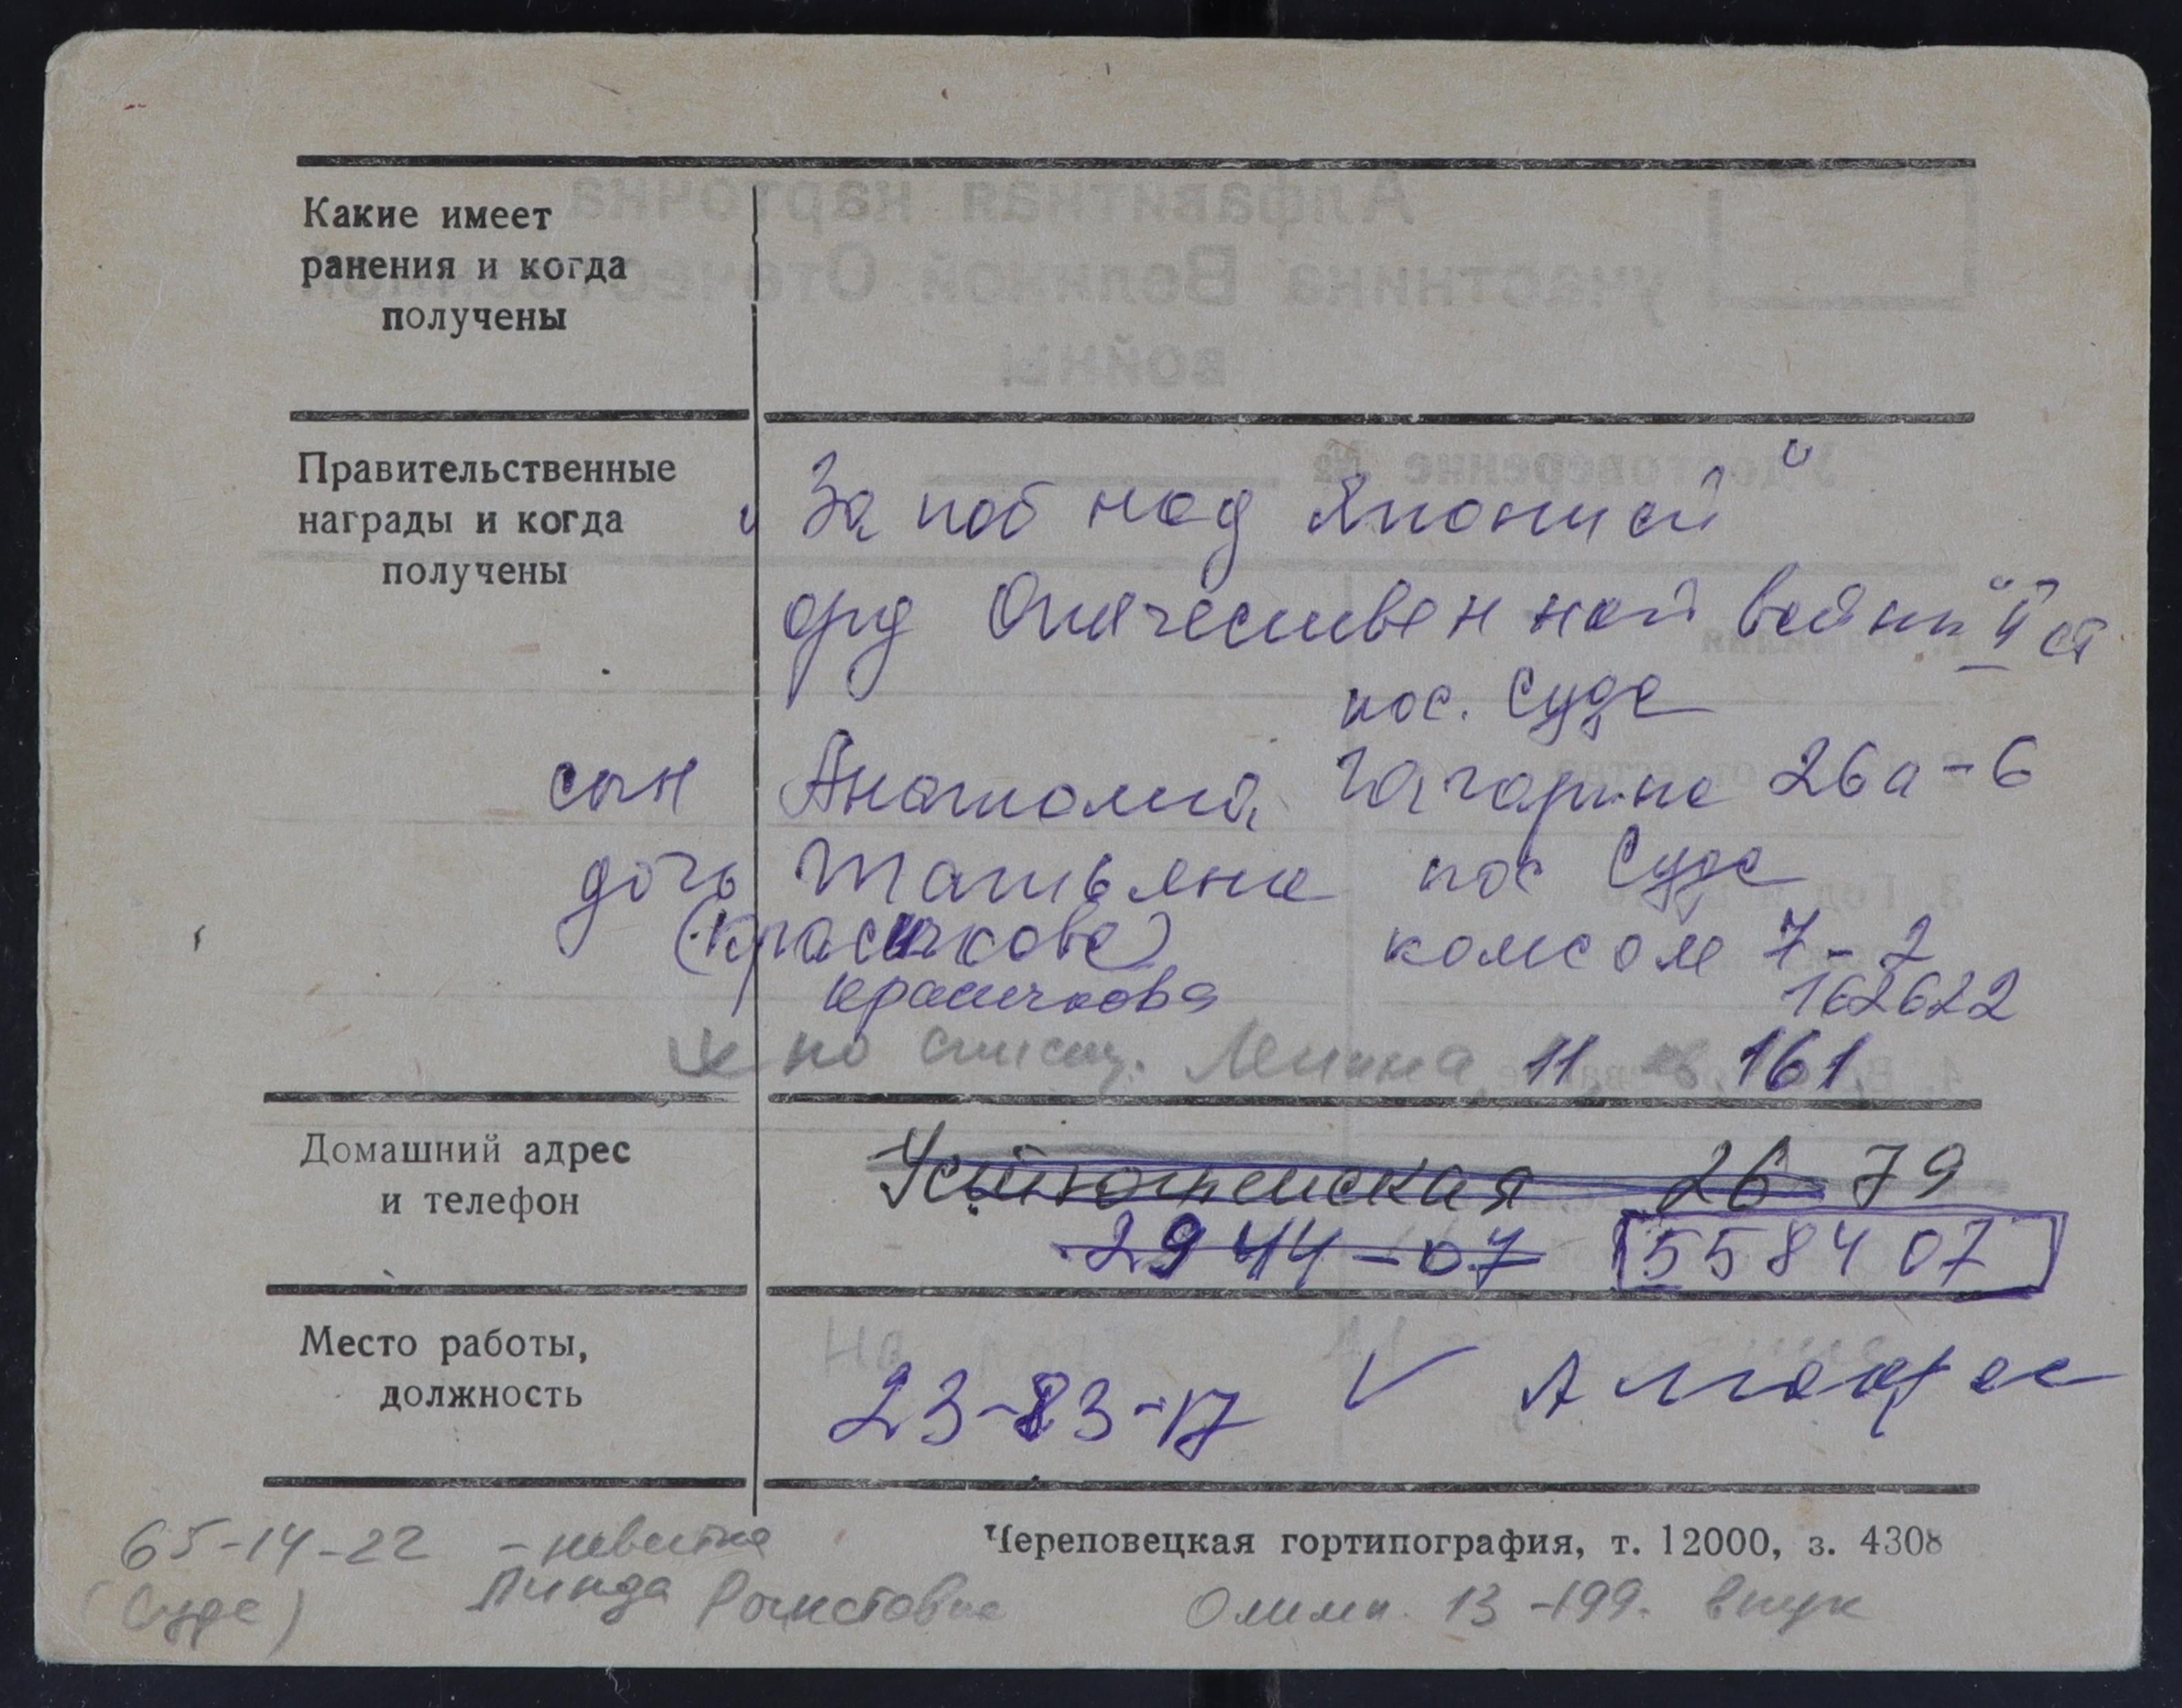 Какие имеет
ранения и когда
получены
Правительственные
награды и когда
получены
„За поб над Японией“
орд Отечественной войны" II ст
пос. Суда
сын Анатолий Гагарина 26а-6
дочь Татьяна пос Суда
(Красикова) комсом 7-2
Красичкова 162622
по списку. Ленина, 11, кв, 161,
Домашний адрес
и телефон
Устюженская 26 79
29 44-07 558407
Место работы,
должность
23-83-17 V
65-14-22 - невестка
Череповецкая гортипография, т. 12000, з. 4308
(Суда) Линда
Олимп. 13-199. внук